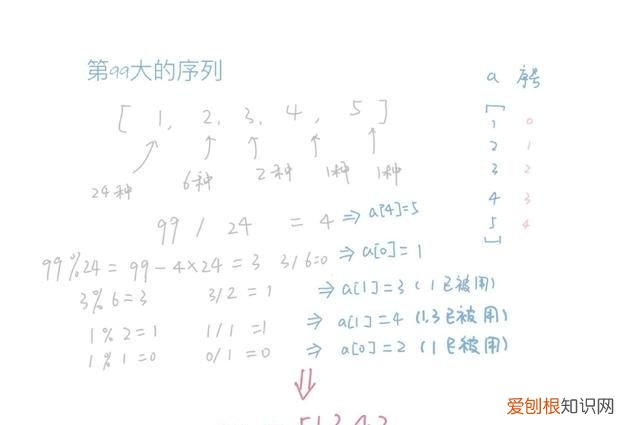 第99大的序列
a 序号
[ 1, 2, 3, 4, 5 ]
1 0
2 1
3 2
4 3
5 4
24种 6种 2种 1种 1种
99 / 24 = 4 ⇒ a[4]=5
99%24 = 99-4×24 = 3 3/6=0 ⇒ a[0]=1
3%6=3 3/2=1 ⇒ a[1]=3 (1已被用)
1%2=1 1/1=1 ⇒ a[1]=4 (1,3已被用)
1%1=0 0/1=0 ⇒ a[0]=2 (1已被用)
爱刨根知识网